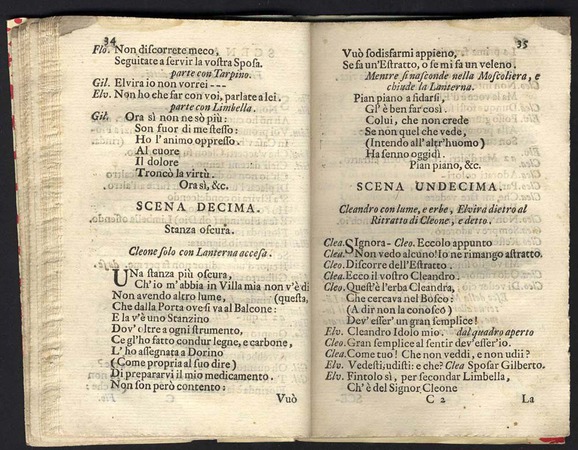 34
Flo. Non discorrete meco.
Seguitate a servir la vostra Sposa.
parte con Tarpino.
Gil. Elvira io non vorrei ---
Elv. Non ho che far con voi, parlate a lei.
parte con Limbella.
Gil. Ora sì non ne sò più:
Son fuor di me stesso:
Ho l'animo oppresso.
Al cuore
Il dolore
Troncò la virtù.
Ora sì, &c.
SCENA DECIMA.
Stanza oscura.
Cleone solo con Lanterna accesa.
UNa stanza più oscura,
Ch'io m'abbia in Villa mia non v'è di
Non avendo altro lume, (questa,
Che dalla Porta ove si va al Balcone:
E la v'è uno Stanzino
Dov'oltre a ogni strumento,
Ce gl'ho fatto condur legne, e carbone,
L'ho assegnata a Dorino
(Come propria al suo dire)
Di prepararvi il mio medicamento.
Non son però contento:
C
Vuò
35
Vuò sodisfarmi appieno,
Se fa un'Estratto, o se mi fa un veleno.
Mentre si nasconde nella Moscoliera, e
chiude la Lanterna.
Pian piano a fidarsi,
Gl'è ben far così.
Colui, che non crede
Se non quel che vede,
(Intendo all'altr'huomo)
Ha senno oggidì.
Pian piano, &c.
SCENA UNDECIMA.
Cleandro con lume, e erbe, Elvira dietro al
Ritratto di Cleone, e detto.
Clea. SIgnora - Cleo. Eccolo appunto
Clea. Non vedo alcuno! Io ne rimango astratto.
Cleo. Discorre dell'Estratto.
Clea. Ecco il vostro Cleandro.
Cleo. Quest'è l'erba Cleandra,
Che cercava nel Bosco:
(A dir non la conosco)
Dev'esser un gran semplice!
Elv. Cleandro Idolo mio. dal quadro aperto
Cleo. Gran semplice al sentir dev'esser'io.
Clea. Come tuo! Che non veddi, e non udii?
Elv. Vedesti, udisti: e che? Clea Sposar Gilberto.
Elv. Fintolo sì, per secondar Limbella,
Ch'è del Signor Cleone
C 2
La